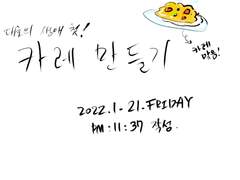 대호의 생애 첫!
카레 만들기
카레 맞음!
2022.1.21.FRIDAY
AM:11:37 작성.